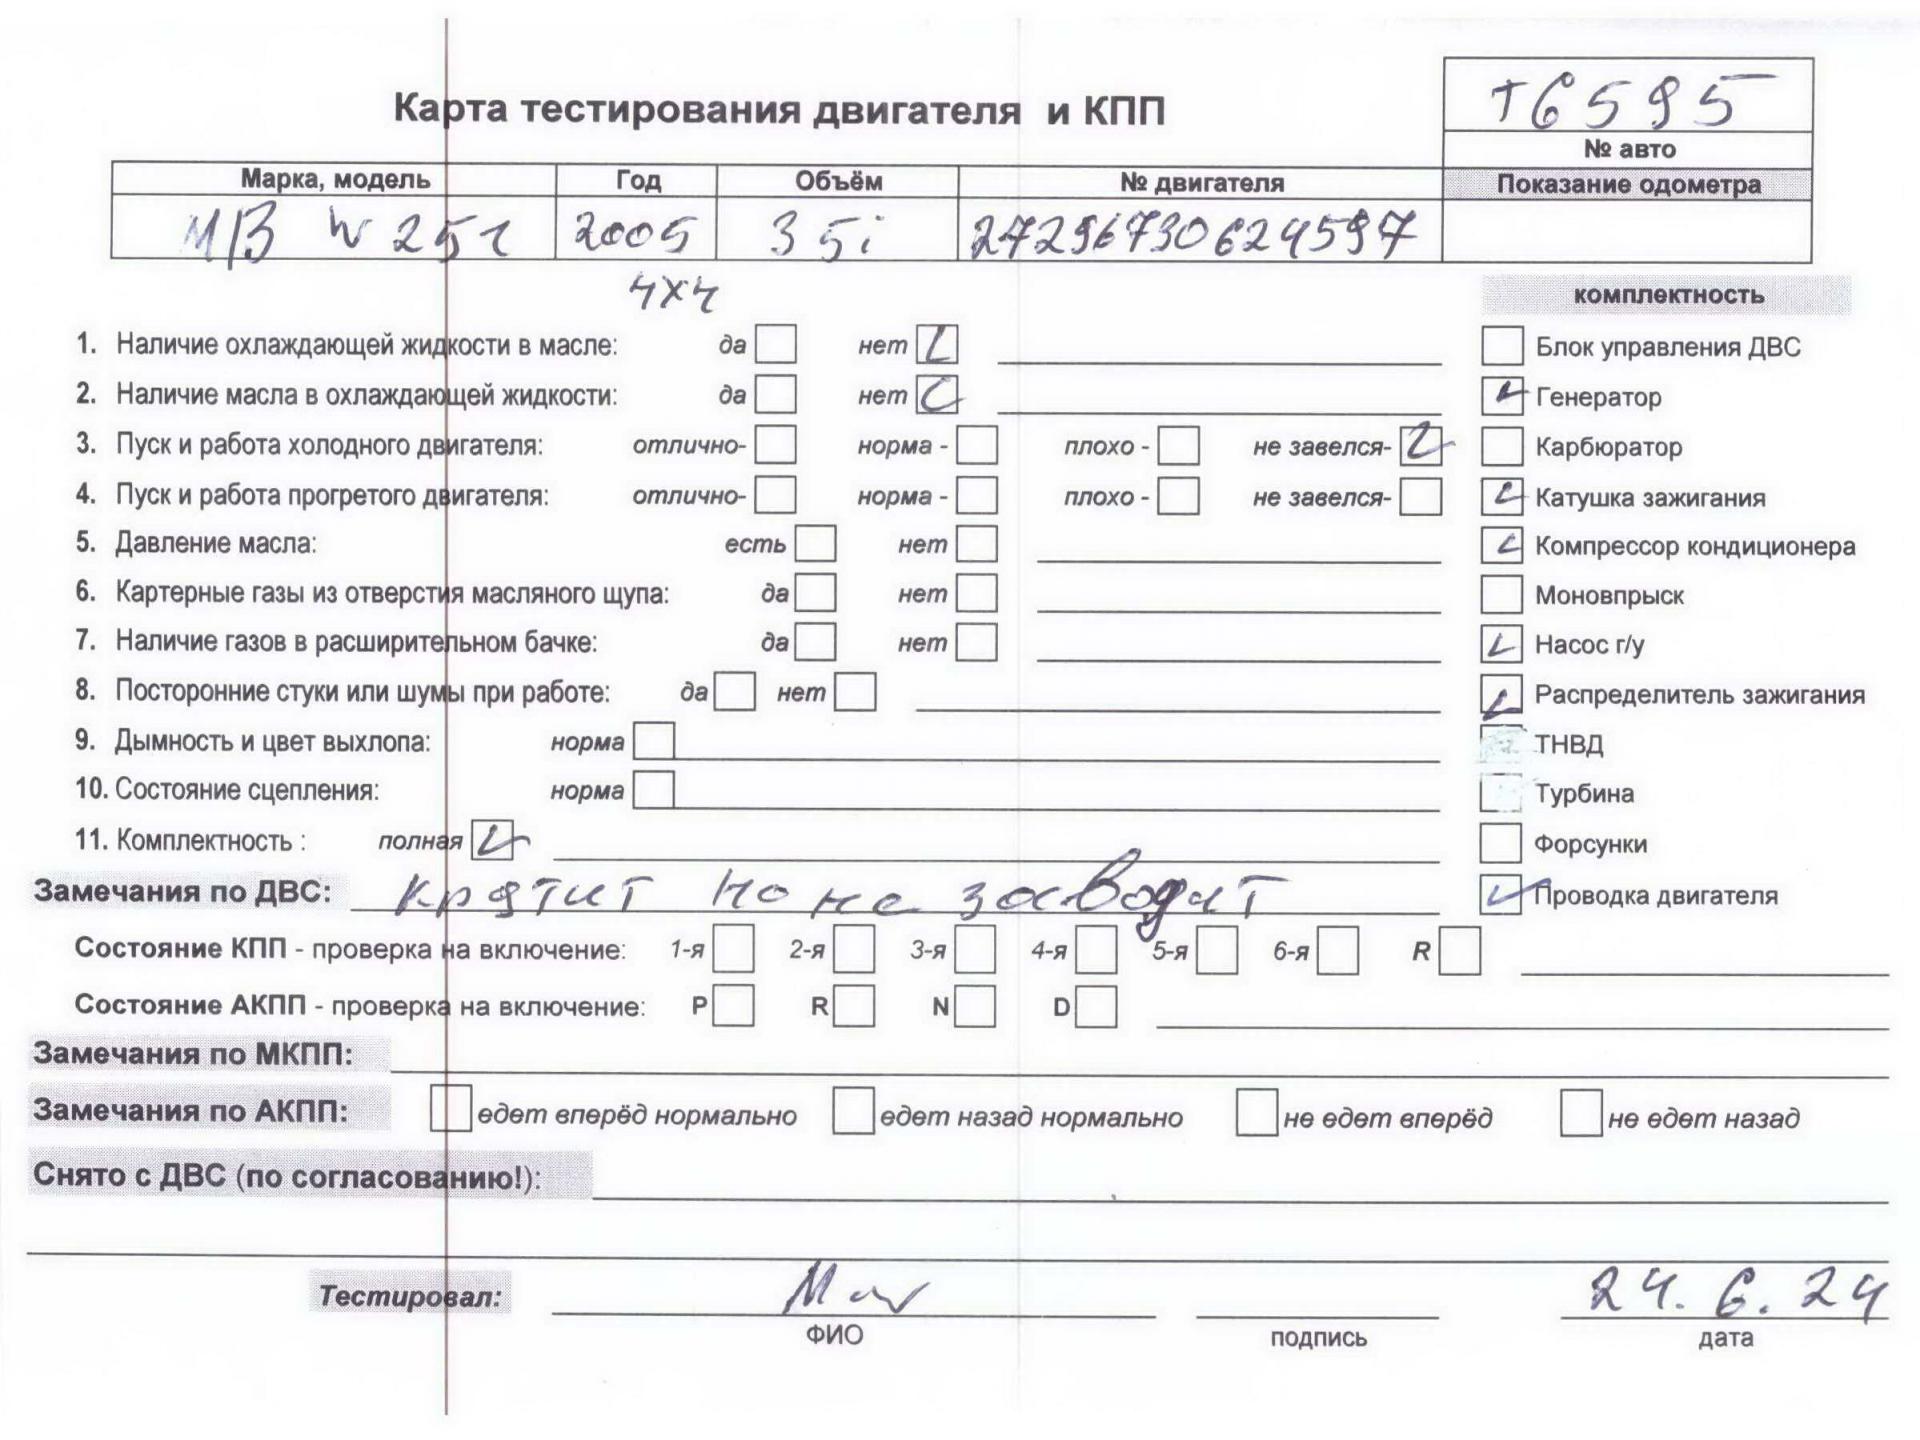 Т6595
Карта тестирования двигателя и КПП
№ авто
Марка, модель Год Объём № двигателя Показание одометра
MB W251 2005 35i 27296730624597
4x4
комплектность
1. Наличие охлаждающей жидкости в масле: да нет Блок управления ДВС
2. Наличие масла в охлаждающей жидкости: да нет Генератор
3. Пуск и работа холодного двигателя: отлично- норма - плохо - не завелся- Карбюратор
4. Пуск и работа прогретого двигателя: отлично- норма - плохо - не завелся- Катушка зажигания
5. Давление масла: есть нет Компрессор кондиционера
6. Картерные газы из отверстия масляного щупа: да нет Моновпрыск
7. Наличие газов в расширительном бачке: да нет Насос г/у
8. Посторонние стуки или шумы при работе: да нет Распределитель зажигания
9. Дымность и цвет выхлопа: норма ТНВД
10. Состояние сцепления: норма Турбина
11. Комплектность : полная Форсунки
Замечания по ДВС: крятит но не заводит Проводка двигателя
Состояние КПП - проверка на включение: 1-я 2-я 3-я 4-я 5-я 6-я R
Состояние АКПП - проверка на включение: P R N D
Замечания по МКПП:
Замечания по АКПП: едет вперёд нормально едет назад нормально не едет вперёд не едет назад
Снято с ДВС (по согласованию!):
Тестировал: 24.6.24
ФИО подпись дата